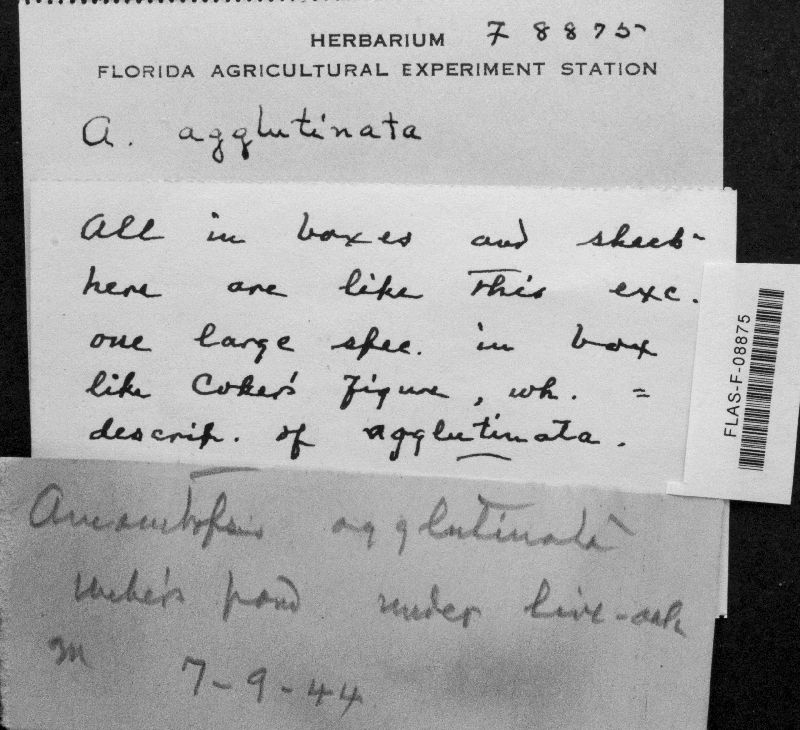 HERBARIUM F 8875
FLORIDA AGRICULTURAL EXPERIMENT STATION
A. agglutinata
All in boxes and sheet-
here are like this exc.
one large spec. in box
like Coker's figure, wh. =
descrip. of agglutinata.
FLAS-F-08875
Amanitopsis agglutinata
pond under live-oak
7-9-44